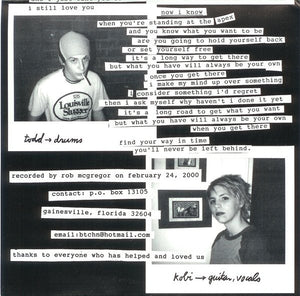 i still love you
now i know
when you're standing at the apex
and you know what you want to be
are you going to hold yourself back
or set yourself free
it's a long way to get there
but what you have will always be your own
once you get there
i make my mind up over something
i consider something i'd regret
then i ask myself why haven't i done it yet
it's a long road to get what you want
but what you have will always be your own
when you get there
find your way in time
you'll never be left behind.
Louisville
Slugger
todd → drums
recorded by rob mcgregor on february 24, 2000
contact: p.o. box 13105
gainesville, florida 32604
email:btchn@hotmail.com
thanks to everyone who has helped and loved us
kobi → guitar, vocals